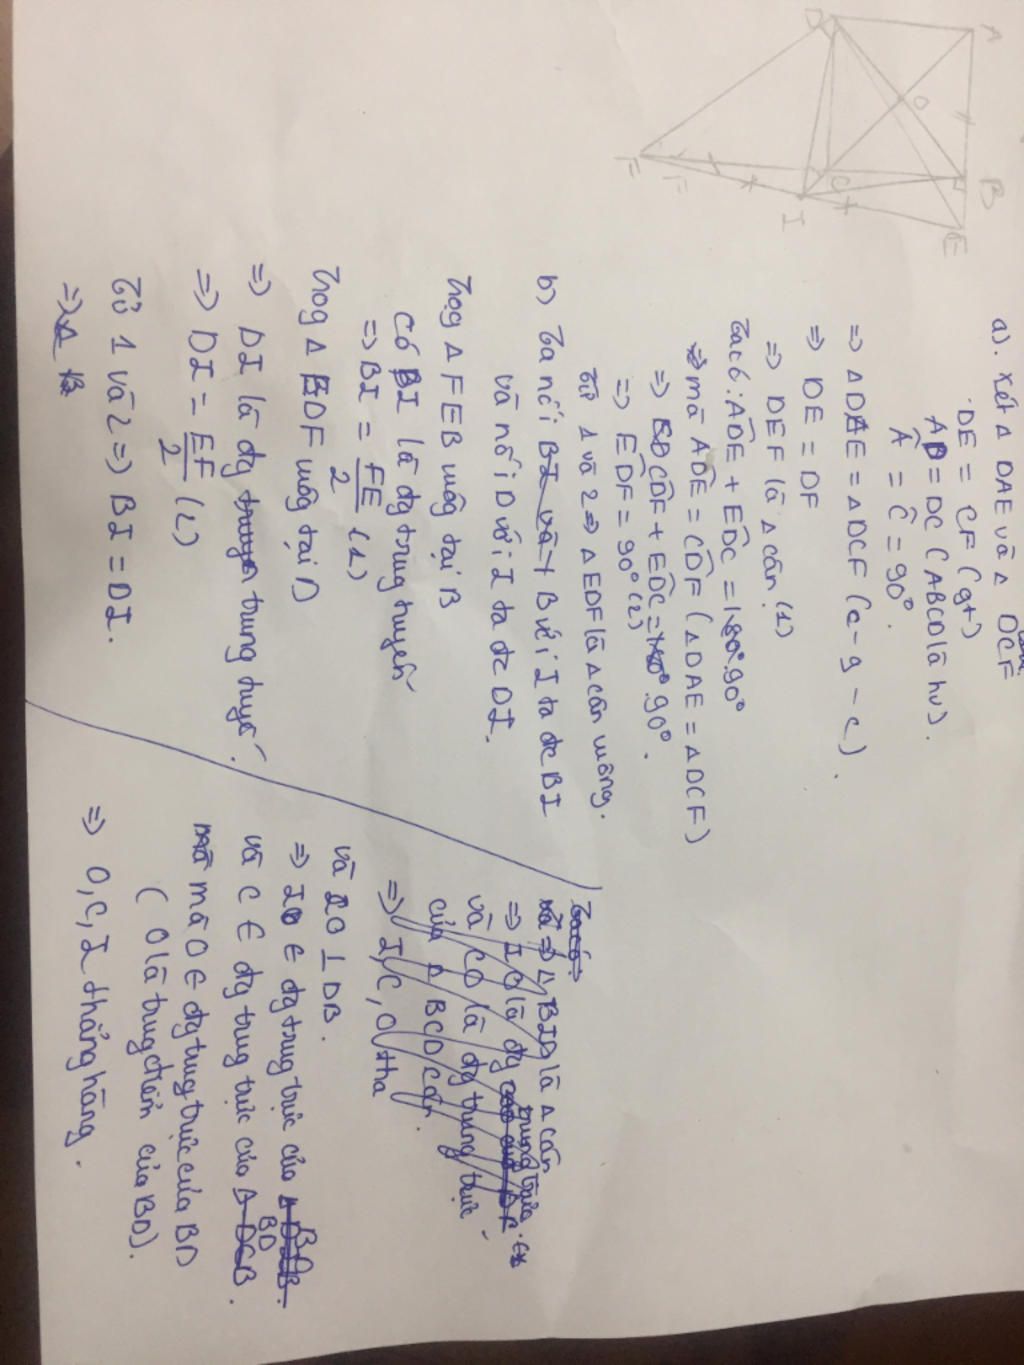 D
A
O
B
C
F
F
I
E
a). Xét Δ DAE và Δ DCF
· DE = CF (gt)
AD = DC (ABCD là hv).
Â = Ĉ = 90°.
⇒ Δ DAE = Δ DCF (c – g – c).
⇒ DE = DF
⇒ DEF là Δ cân (1)
Ta có: ADE + EDC = 90°
mà ADE = CDF (Δ DAE = Δ DCF)
⇒ CDF + EDC = 90°.
⇒ EDF = 90° (2)
từ 1 và 2 ⇒ Δ EDF là Δ cân vuông.
b) Ta nối B với I ta đc BI
và nối D với I ta đc DI.
Trog Δ FEB vuông tại B
có BI là đg trung tuyến
⇒ BI = FE/2 (1)
Trog Δ EDF vuông tại D
⇒ DI là đg trung tuyến.
⇒ DI = EF/2 (2)
Từ 1 và 2 ⇒ BI = DI.
⇒ Δ B
⇒ Δ BID là Δ cân
⇒ IO là đg trung trực
và CO là đg trung trực
của Δ BCD cân.
⇒ I, C, O tha
và IO ⊥ DB.
⇒ I ∈ đg trung trực của BD
và C ∈ đg trung trực của BD.
mà O ∈ đg trung trực của BD
( O là trung điểm của BD).
⇒ O, C, I thẳng hàng.